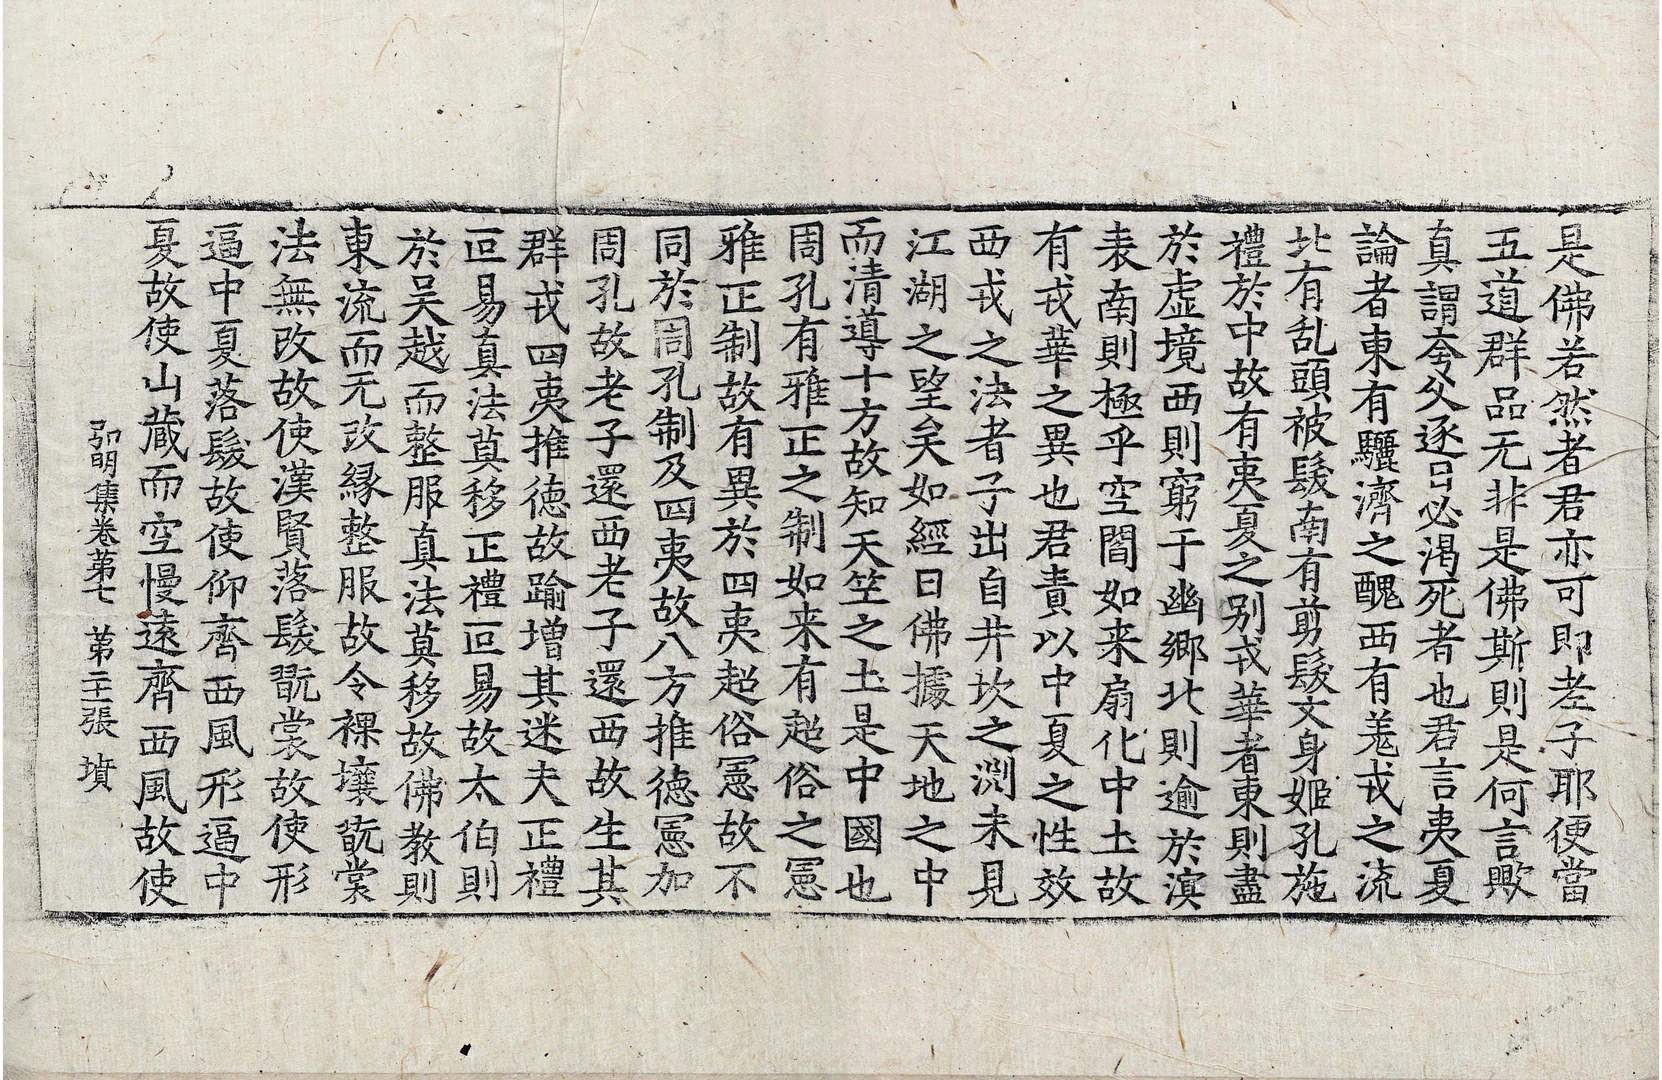 是佛若然者君亦可即老子耶便當
五道群品无非是佛斯則是何言歟
真謂夸父逐日必渴死者也君言夷夏
論者東有驪濟之醜西有羗戎之流
北有乱頭被髮南有剪髮文身姬孔施
禮於中故有夷夏之别戎華者東則盡
於虛境西則窮于幽鄉北則逾於溟
表南則極乎空閻如来扇化中土故
有戎華之異也君責以中夏之性效
西戎之法者子出自井坎之渕未見
江湖之望矣如經曰佛據天地之中
而清導十方故知天竺之土是中國也
周孔有雅正之制如来有超俗之憲
雅正制故有異於四夷超俗憲故不
同於周孔制及四夷故八方推德憲加
周孔故老子還西老子還西故生其
群戎四夷推德故踰增其迷夫正禮
叵易真法莫移正禮叵易故太伯則
於吴越而整服真法莫移故佛教則
東流而无改縁整服故令裸壤翫裳
法無改故使漢賢落髮翫裳故使形
逼中夏落髮故使仰齊西風形逼中
夏故使山藏而空慢遠齊西風故使
弘明集卷第七 第二十一張 墳